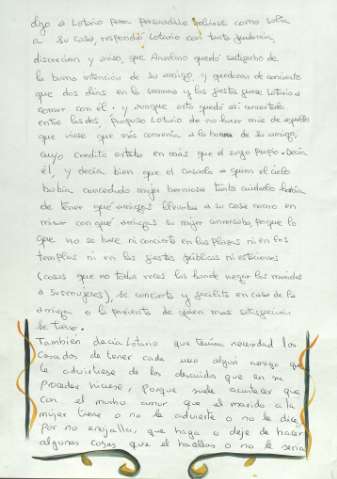 dijo a Lotario para persuadille volviese como solía
a su casa, respondió Lotario con tanta prudencia,
discreción y aviso, que Anselmo quedó satisfecho de
la buena intención de su amigo, y quedaron de concierto
que dos días en la semana y las fiestas fuese Lotario a
comer con él. y aunque esto quedó así concertado
entre los dos, propuso Lotario de no hacer más de aquello
que viese que más convenía a la honra de su amigo,
cuyo crédito estaba en más que el suyo propio. Decía
él, y decía bien que el casado a quien el cielo
había concedido mujer hermosa tanto cuidado había
de tener qué amigos llevaba a su casa como en
mirar con qué amigas su mujer conversaba, porque lo
que no se hace ni concierta en las plazas ni en los
templos ni en las fiestas públicas ni estaciones
(cosas que no todas veces las han de negar los maridos
a sus mujeres), se concierta y facilita en casa de la
amiga o la parienta de quien más satisfacción
se tiene.
También decía Lotario que tenían necesidad los
casados de tener cada uno algún amigo que
le advirtiese de los descuidos que en su
proceder hiciese, porque suele acontecer que
con el mucho amor que el marido a la
mujer tiene o no le advierte o no le dice,
por no enojalla, que haga o deje de hacer
algunas cosas, que el hacellas o no le sería